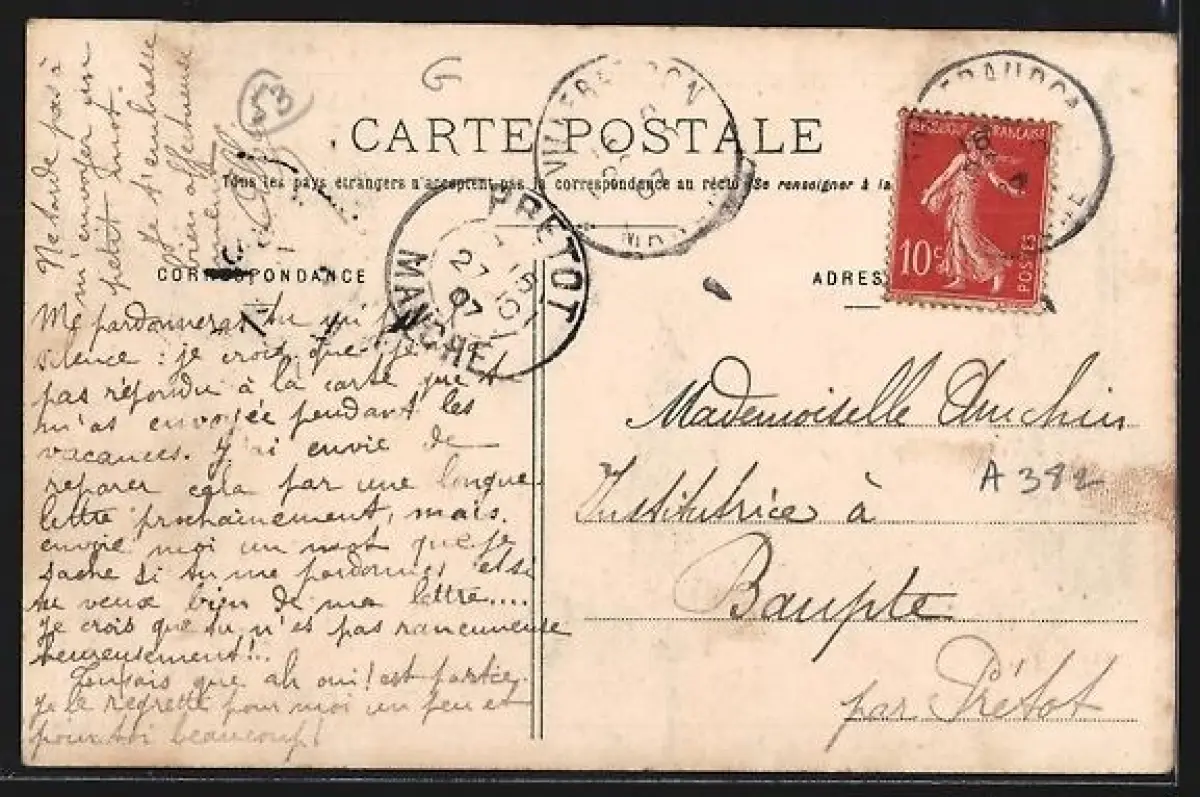 CARTE POSTALE
Tous les pays étrangers n'acceptent pas la correspondance au recto (Se renseigner à la
CORRESPONDANCE
ADRES
REPUBLIQUE FRANÇAISE
10 c
POSTES
PRETOT
27 10 07
MANCHE
53
G
Me pardonneras tu mon
silence : je crois que je n'ai
pas répondu à la carte que t
m'as envoyée pendant les
vacances. J'ai envie de
réparer cela par une longue
lettre prochainement, mais.
envoie moi un mot que je
sache si tu me pardonnes et si
tu veux bien de ma lettre....
Je crois que tu n'es pas rancuneuse
heureusement!..
que ah oui! est partie,
Je le regrette pour moi un peu et
pour toi beaucoup!
Ne tarde pas à
m'envoyer un
petit mot.
Je t'embrasse
bien affectueuse
ment
Mademoiselle
Institutrice à
Baupte
par Prétot
A 382